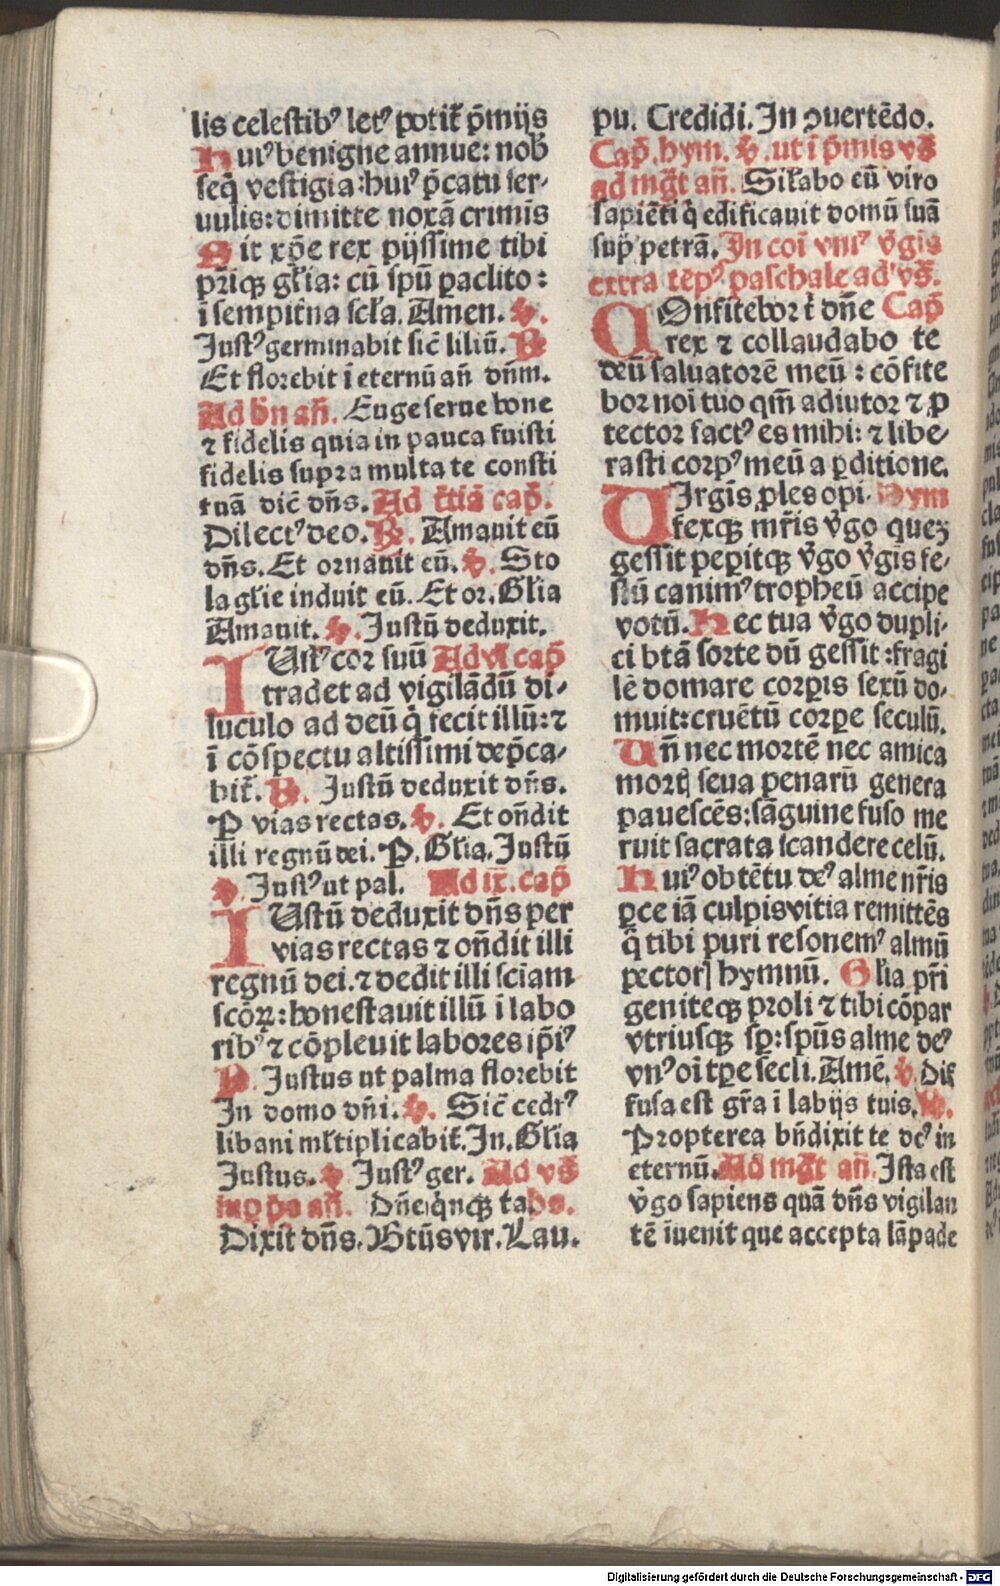 lis celestibꝰ letꝰ potit᷑ p̄mijs
Huiꝰ benigne annue: nob̄
seq̄ vestigia: huiꝰ p̄catu ser-
uulis: dimitte noxā crimīs
Sit xp̄e rex pijssime tibi
pr̄iqꝫ gl̄ia: cū spū paclito:
i sempit̄na scl̄a. Amen. ꝟ.
Justꝰ germinabit sic̄ liliū. ℞
Et florebit ī eternū añ dn̄m.
Ad bn̄ añ. Euge serue bone
⁊ fidelis quia in pauca fuisti
fidelis supra multa te consti
tuā dic̄ dn̄s. Ad t̄tiā cap̄.
Dilectꝰ deo. ℞. Amauit eū
dn̄s. Et ornauit eū. ꝟ. Sto
la gl̄ie induit eū. Et or. Gl̄ia
Amauit. ꝟ. Justū deduxit.
IUstꝰ cor suū Ad vi cap̄
tradet ad vigilādū di-
luculo ad deū q̄ fecit illū: ⁊
ī cōspectu altissimi dep̄ca-
bit᷑. ℞. Justū deduxit dn̄s.
P vias rectas. ꝟ. Et on̄dit
illi regnū dei. P. Gl̄ia. Justū
ꝟ. Justꝰ ut pal. Ad ix. cap̄
IUstū deduxit dn̄s per
vias rectas ⁊ on̄dit illi
regnū dei. ⁊ dedit illi sciam
scōꝝ: honestauit illū i labo
ribꝰ ⁊ cōpleuit labores ip̄iꝰ
℞. Justus ut palma florebit
In domo dn̄i. ꝟ. Sic̄ cedrꝰ
libani ml̄tiplicabit᷑. In. Gl̄ia
Justus. ꝟ Justꝰ ger. Ad vs̄
sup̄ ps añ. Dn̄e q̇nqꝫ ta ps.
Dixit dn̄s. Btūs vir. Lau.
pu. Credidi. In ꝯuertēdo.
Cap̄. hym. ꝟ. ut ī p̄mis vs̄
ad mg̅t añ. Sil̄abo eū viro
sapiēti q̄ edificauit domū suā
sup̄ petrā. In coī vniꝰ v̄gis
extra tēpꝰ paschale ad vs̄.
COnfitebor t᷑ dn̄e Cap̄
rex ⁊ collaudabo te
deū saluatorē meū: cōfite
bor noi tuo qm̄ adiutor ⁊ ꝓ
tector factꝰ es mihi: ⁊ libe-
rasti corpꝰ meū a ꝑditione.
UIrgīs ꝓles opi- Hym
fexqꝫ mr̄is v̄go queꝫ
gessit peperitqꝫ v̄go v̄gis fe-
stū canimꝰ tropheū accipe
votū. Hec tua v̄go dupli-
ci btā sorte dū gessit: fragi
lē domare corꝑis sexū do-
muit: cruētū corꝑe seculū.
Un̄ nec mortē nec amica
mortꝭ seua penarū genera
pauescēs: sāguine fuso me
ruit sacrata scandere celū.
Huiꝰ obtētu deꝰ alme nr̄is
ꝑce iā culpis vitia remittēs
q̄ tibi puri resonemꝰ almū
pectorꝭ hymnū. Gl̄ia pr̄i
geniteqꝫ proli ⁊ tibi cōpar
vtriusqꝫ sꝑ: spūs alme deꝰ
vnꝰ oi tꝑe secli. Amē. ꝟ. Dif
fusa est gr̄a ī labijs tuis. ℞.
Propterea bn̄dixit te deꝰ in
eternū. Ad mg̅t añ. Ista est
v̄go sapiens quā dn̄s vigilan
tē īuenit que accepta lāpade
Digitalisierung gefördert durch die Deutsche Forschungsgemeinschaft - DFG